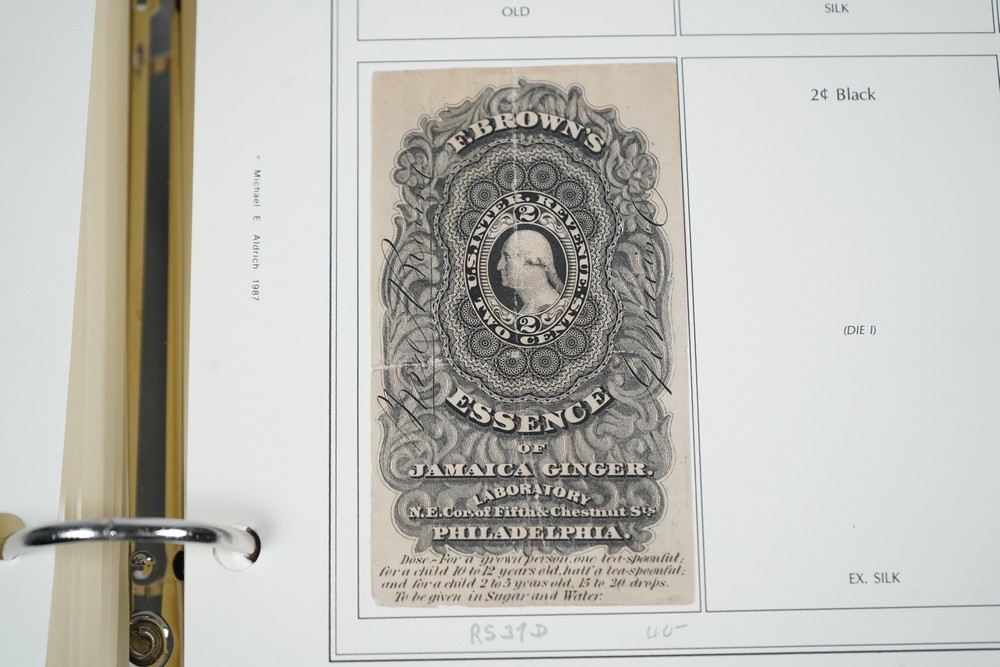 OLD
SILK
2¢ Black
(DIE I)
EX. SILK
© Michael E Aldrich 1987
F. BROWN'S
U.S. INTER. REVENUE.
2
2
TWO CENTS
ESSENCE
OF
JAMAICA GINGER.
LABORATORY
N.E. Cor. of Fifth & Chestnut Sts
PHILADELPHIA.
Dose.-For a grown person, one tea-spoonful;
for a child 10 to 12 years old, half a tea-spoonful;
and for a child 2 to 5 years old, 15 to 20 drops.
To be given in Sugar and Water.
RS37D 40-